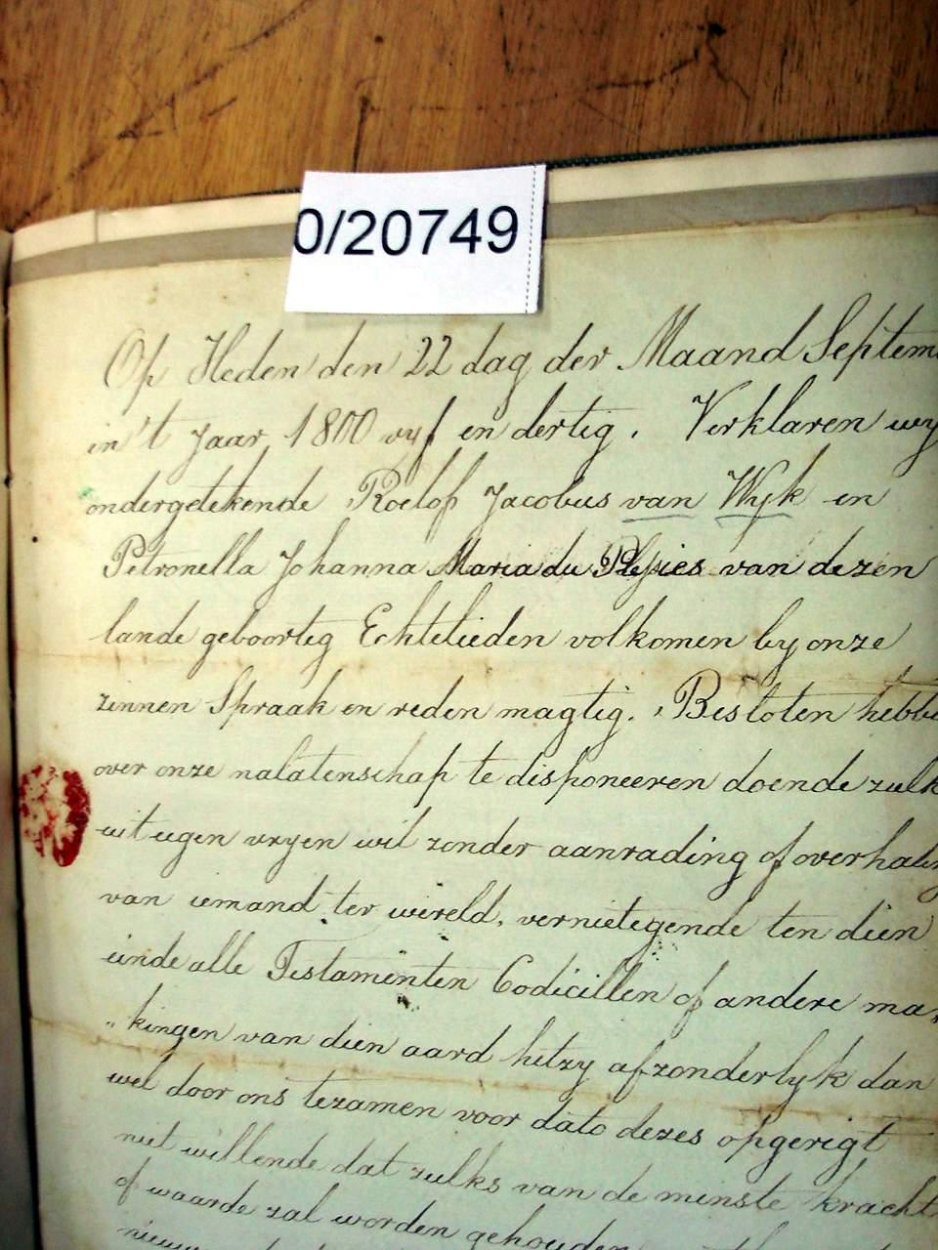 0/20749
Op Heden den 22 dag der Maand Septem
in't Jaar 1800 vyf en dertig. Verklaren wy
ondergetekende Roelof Jacobus van Wyk en
Petronella Johanna Maria du Plesies van dezen
lande geboortig Echtelieden volkomen by onze
zinnen Spraak en reden magtig. Besloten hebbe
over onze nalatenschap te disponeeren doende zulk
uit eigen vryen wil zonder aanrading of overhalin
van iemand ter wereld, vernietegende ten dien
einde alle Testamenten Codicillen of andere ma„
„kingen van dien aard hetzy afzonderlyk dan
wel door ons tezamen voor dato dezes opgerigt
niet willende dat zulks van de minste kracht
of waarde zal worden gehouden